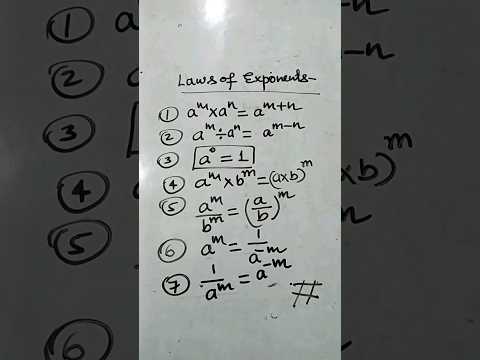 Laws of Exponents-
① aᵐ × aⁿ = aᵐ⁺ⁿ
② aᵐ ÷ aⁿ = aᵐ⁻ⁿ
③ a⁰ = 1
④ aᵐ × bᵐ = (a×b)ᵐ
⑤ aᵐ/bᵐ = (a/b)ᵐ
⑥ aᵐ = 1/a⁻ᵐ
⑦ 1/aᵐ = a⁻ᵐ